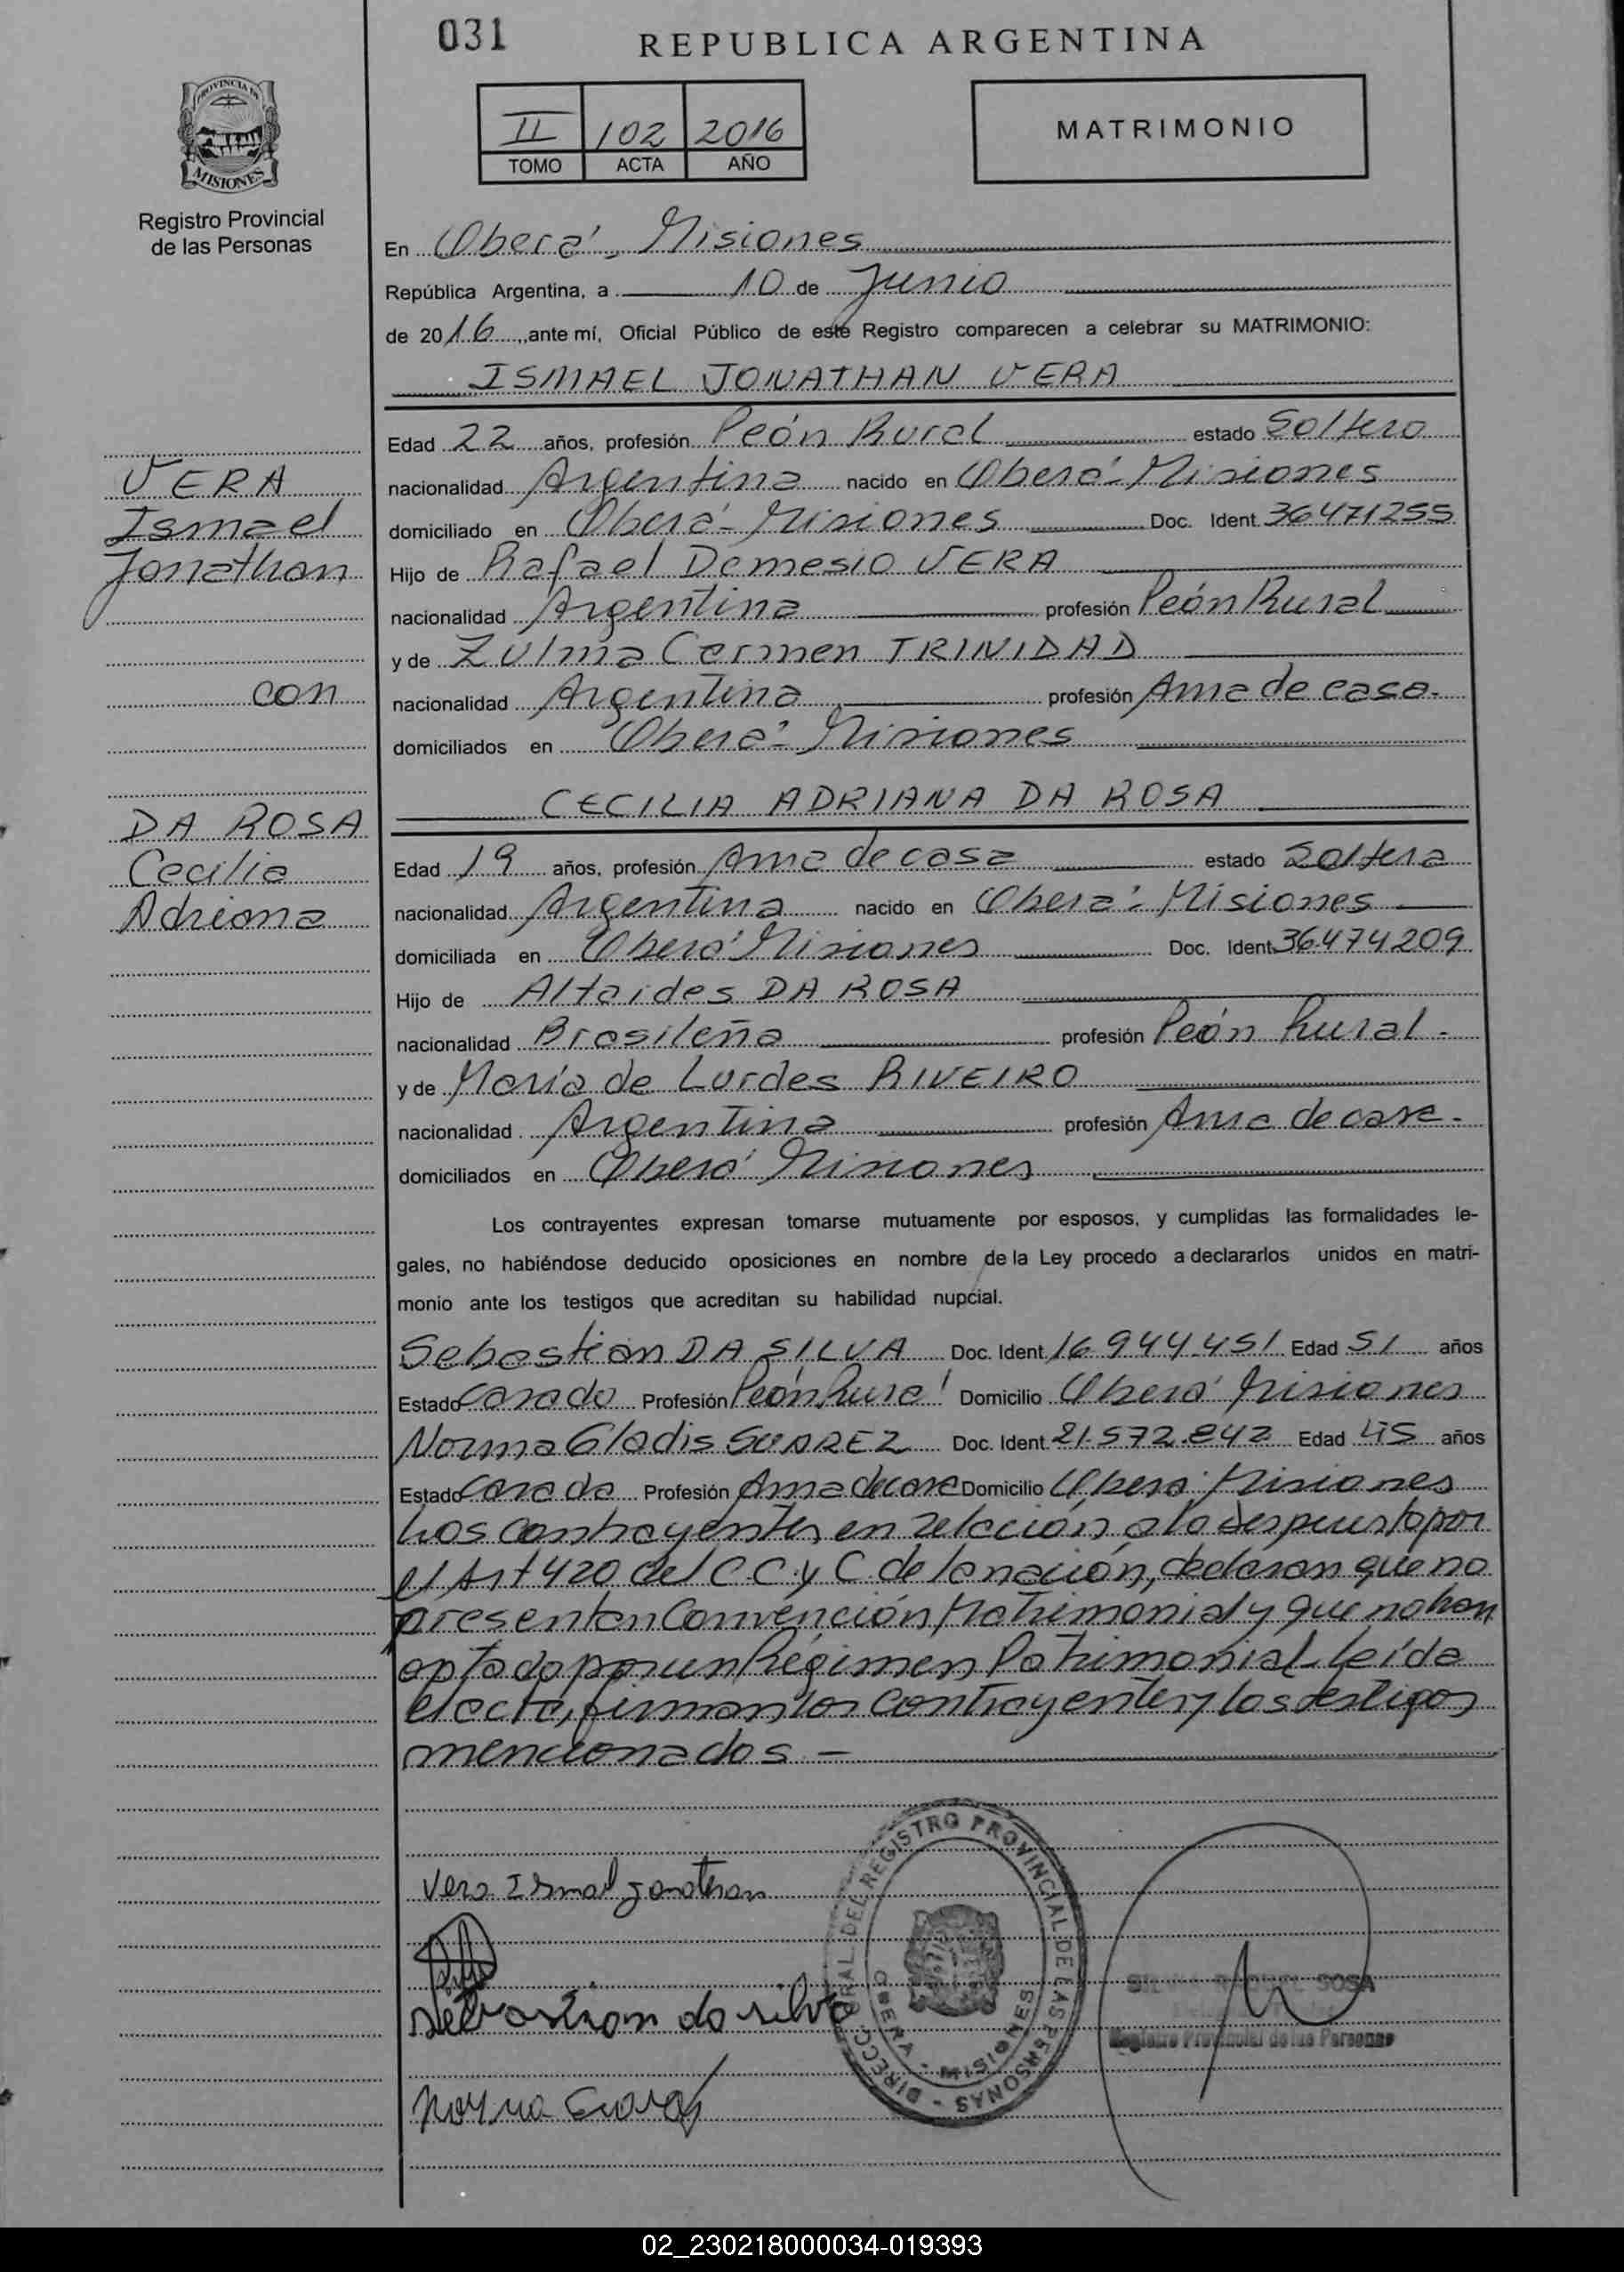 031
REPUBLICA ARGENTINA
II 102 2016
TOMO ACTA AÑO
MATRIMONIO
PROVINCIA DE
MISIONES
Registro Provincial
de las Personas
En Oberá - Misiones
República Argentina, a 10 de Junio
de 2016, ante mí, Oficial Público de este Registro comparecen a celebrar su MATRIMONIO:
ISMAEL JONATHAN VERA
VERA
Ismael
Jonathan
con
DA ROSA
Cecilia
Adriana
Edad 22 años, profesión Peón Rural estado Soltero
nacionalidad Argentina nacido en Oberá - Misiones
domiciliado en Oberá - Misiones Doc. Ident. 36471255
Hijo de Rafael Demesio VERA
nacionalidad Argentina profesión Peón Rural
y de Zulma Carmen TRINIDAD
nacionalidad Argentina profesión Ama de casa.
domiciliados en Oberá - Misiones
CECILIA ADRIANA DA ROSA
Edad 19 años, profesión Ama de casa estado Soltera
nacionalidad Argentina nacido en Oberá - Misiones
domiciliada en Oberá Misiones Doc. Ident. 36.474.209
Hijo de Altaides DA ROSA
nacionalidad Brasileña profesión Peón Rural -
y de María de Lurdes RIVEIRO
nacionalidad Argentina profesión Ama de casa -
domiciliados en Oberá Misiones
Los contrayentes expresan tomarse mutuamente por esposos, y cumplidas las formalidades le-
gales, no habiéndose deducido oposiciones en nombre de la Ley procedo a declararlos unidos en matri-
monio ante los testigos que acreditan su habilidad nupcial.
Sebastián DA SILVA Doc. Ident. 16.944.451 Edad 51 años
Estado Casado Profesión Peón Rural Domicilio Oberá Misiones
Norma Gladis SUAREZ Doc. Ident. 21.572.842 Edad 45 años
Estado Casada Profesión Ama de casa Domicilio Oberá - Misiones
Los contrayentes en relación a lo despuesto por
el Art 420 del C.C. y C. de la nación, declaran que no
presentan Convención Matrimonial y que no han
optado por un Régimen Patrimonial. Leída
el acta, firman los contrayentes y los testigos
mencionados. -
Vera Ismael Jonathan
Sebastian da silva
Norma Suarez
DIRECC. GRAL. DEL REGISTRO PROVINCIAL DE LAS PERSONAS - OBERA - MISIONES
SOSA
Registro Provincial de las Personas
02_230218000034-019393